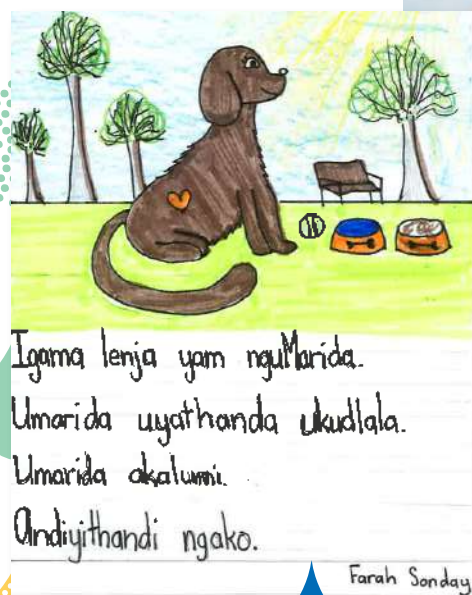 Igama lenja yam nguMarida.
Umarida uyathanda ukudlala.
Umarida akalumi.
Andiyithandi ngako.
Farah Sonday